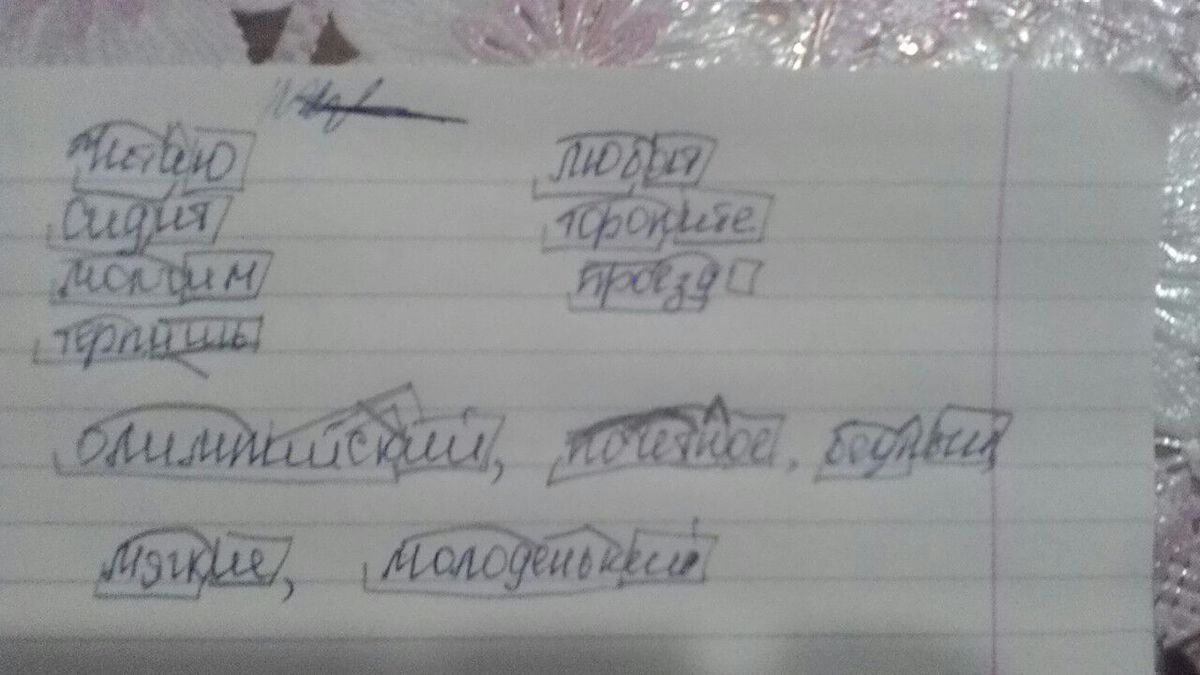 читаю
сидит
молчим
терпишь
любят
торопите
проезд
олимпийский, почетное, бедный
мягкие, молоденький